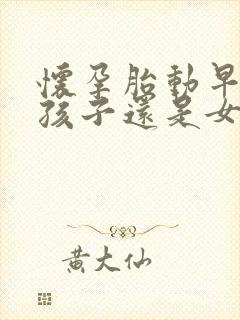 懷孕胎動早
孩子還是女
黃大仙